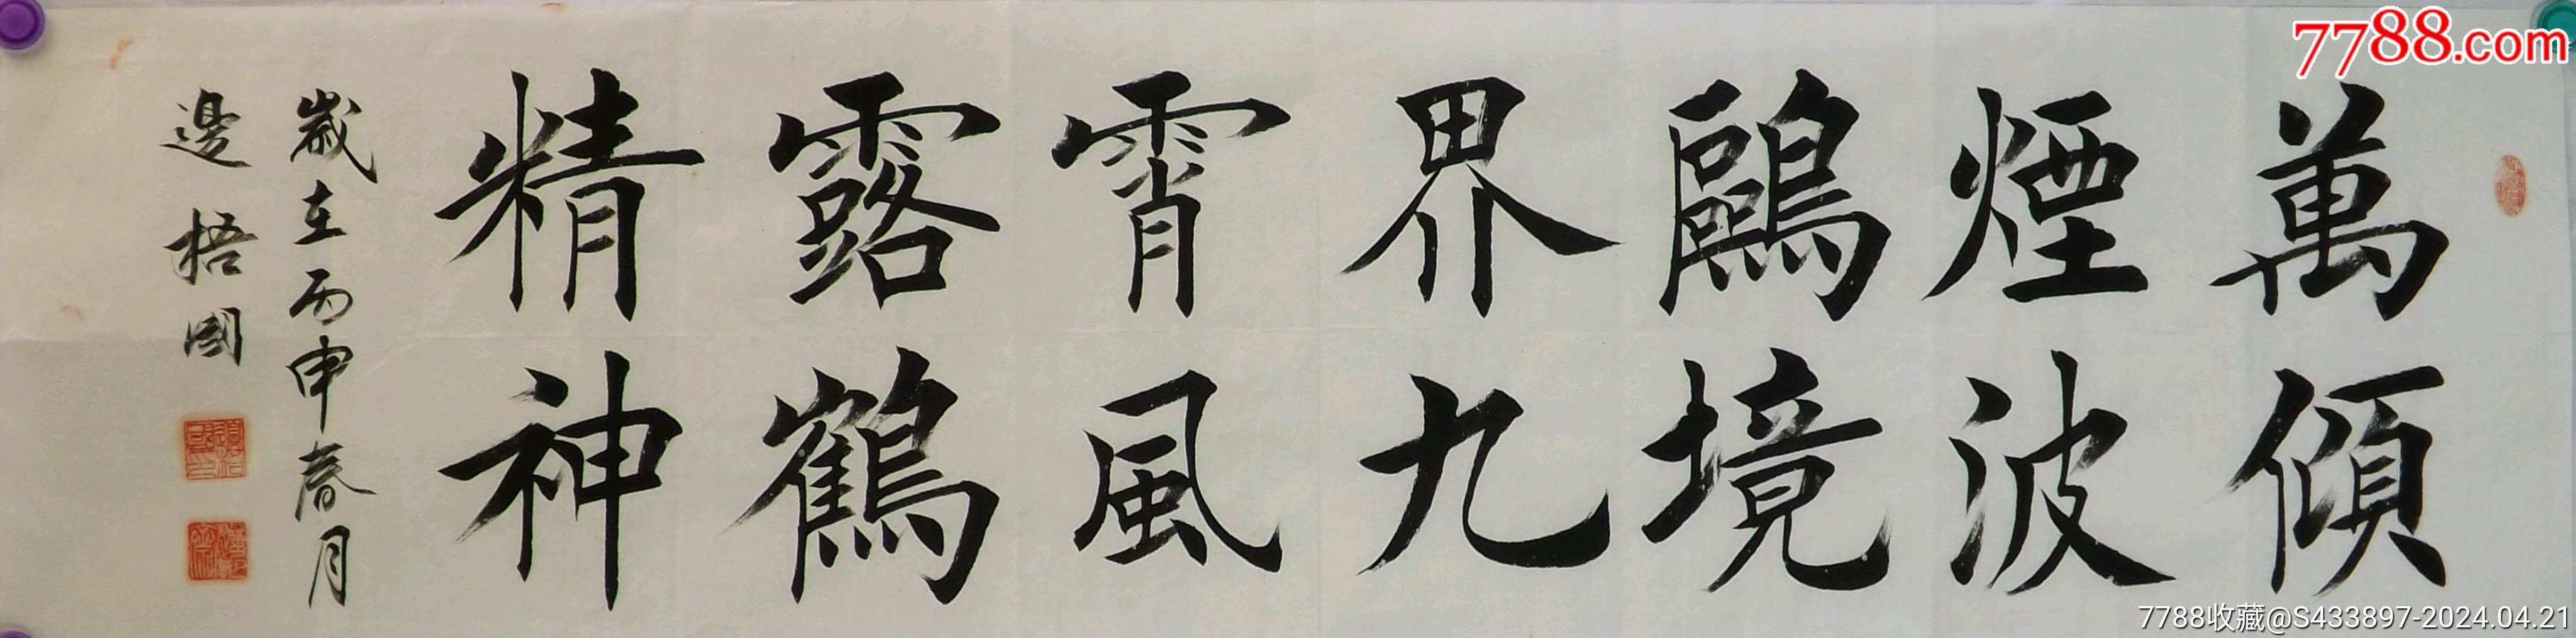 萬傾
煙波
鷗境
界九
霄風
露鶴
精神
歲在丙申春月
邊梧國
7788.com
7788收藏@S433897-2024.04.21